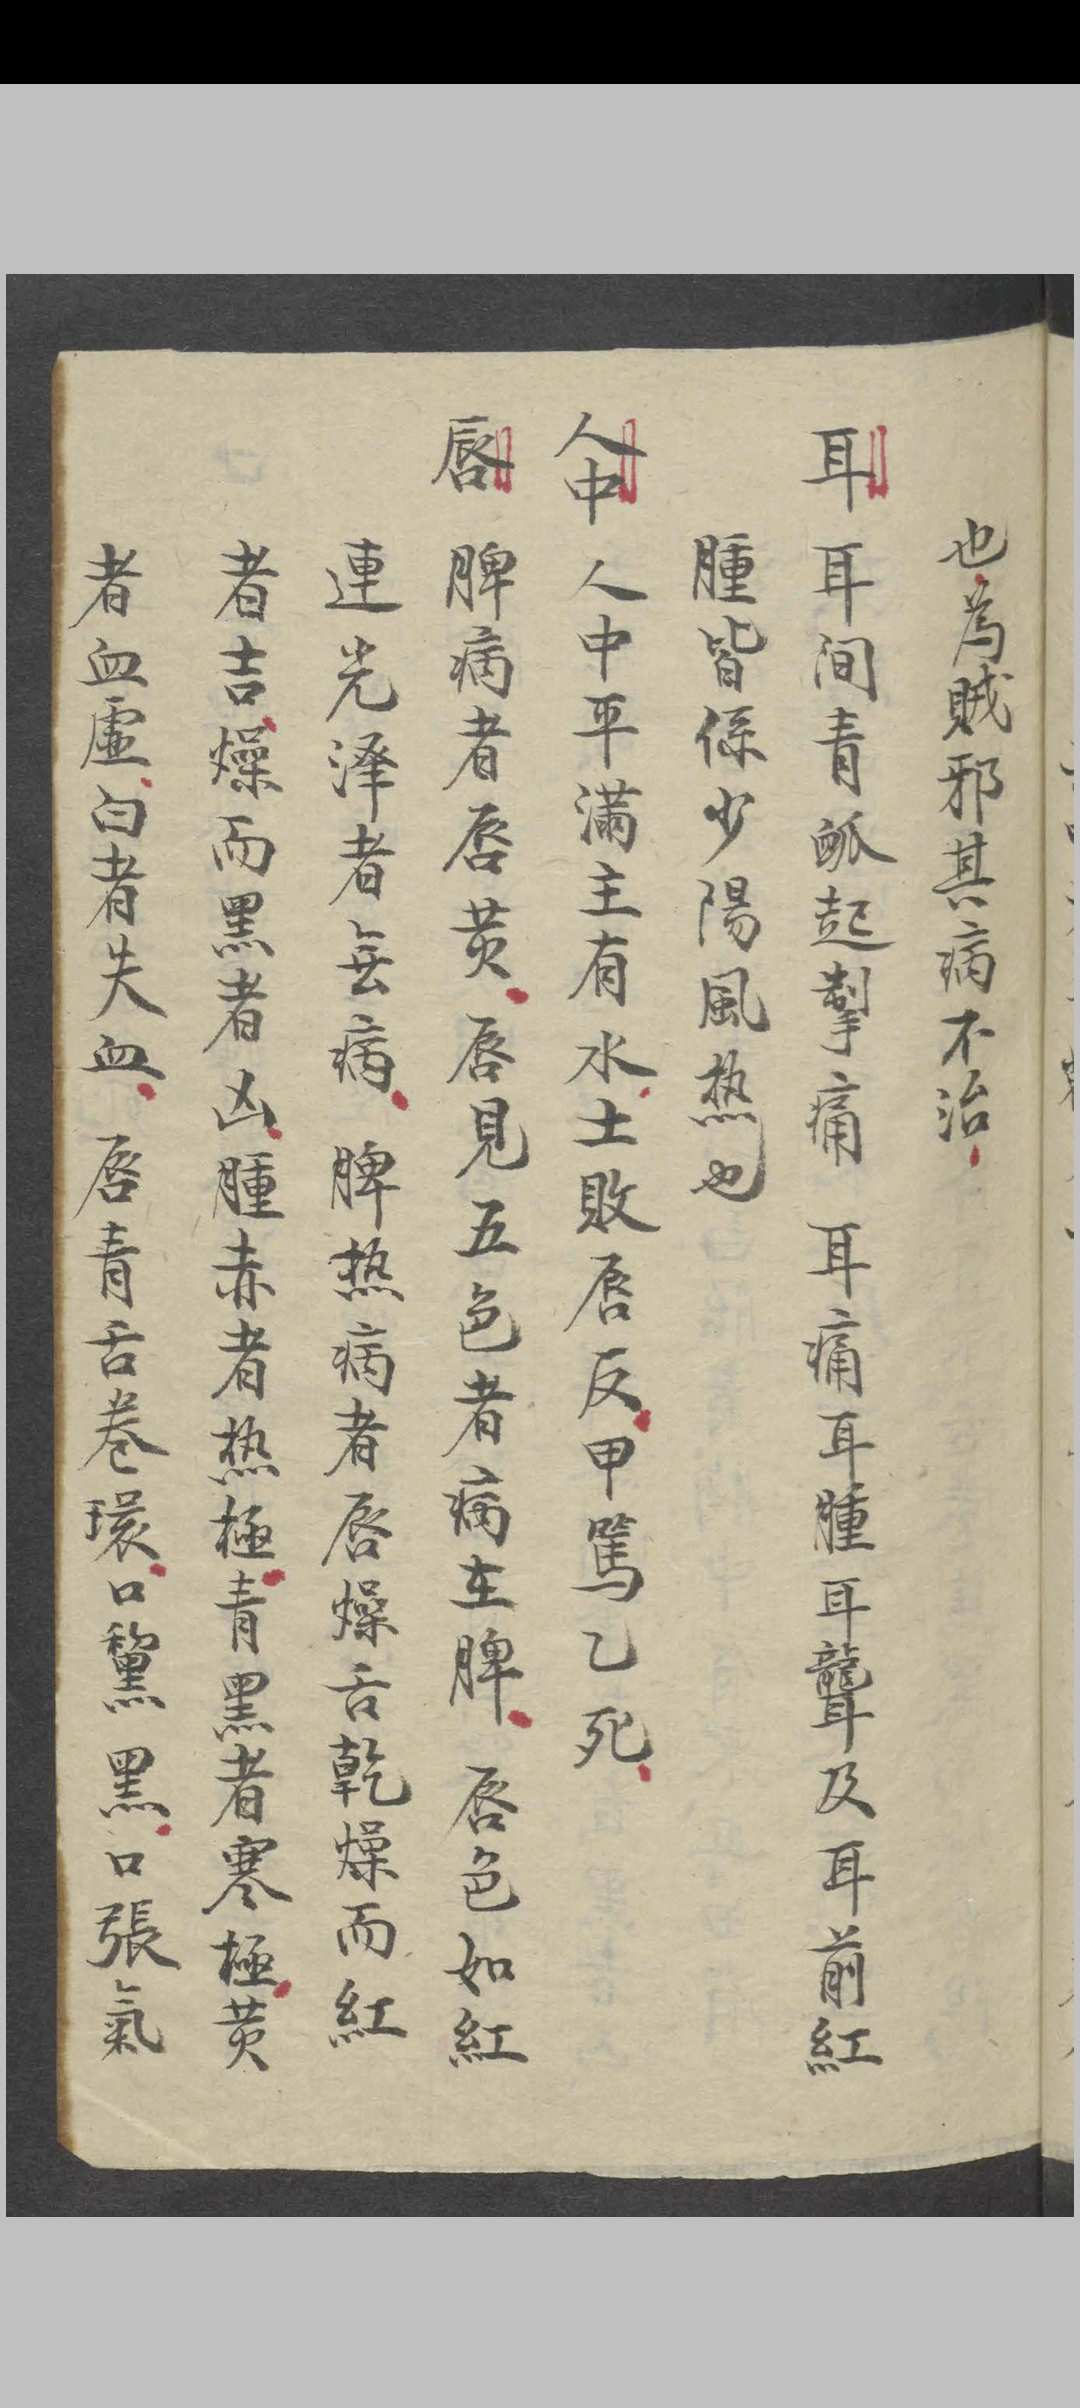 也為賊邪其病不治
耳 耳间青䘑起掣痛 耳痛耳腫耳聾及耳前紅
腫皆係少陽風热也
人中 人中平滿主有水土敗唇反甲篤乙死
唇 脾病者唇黄 唇見五色者病在脾 唇色如紅
連光泽者無病 脾热病者唇燥舌乾燥而紅
者吉燥而黑者凶腫赤者热極青黑者寒極黄
者血虛白者失血 唇青舌卷環口黧黑口張氣